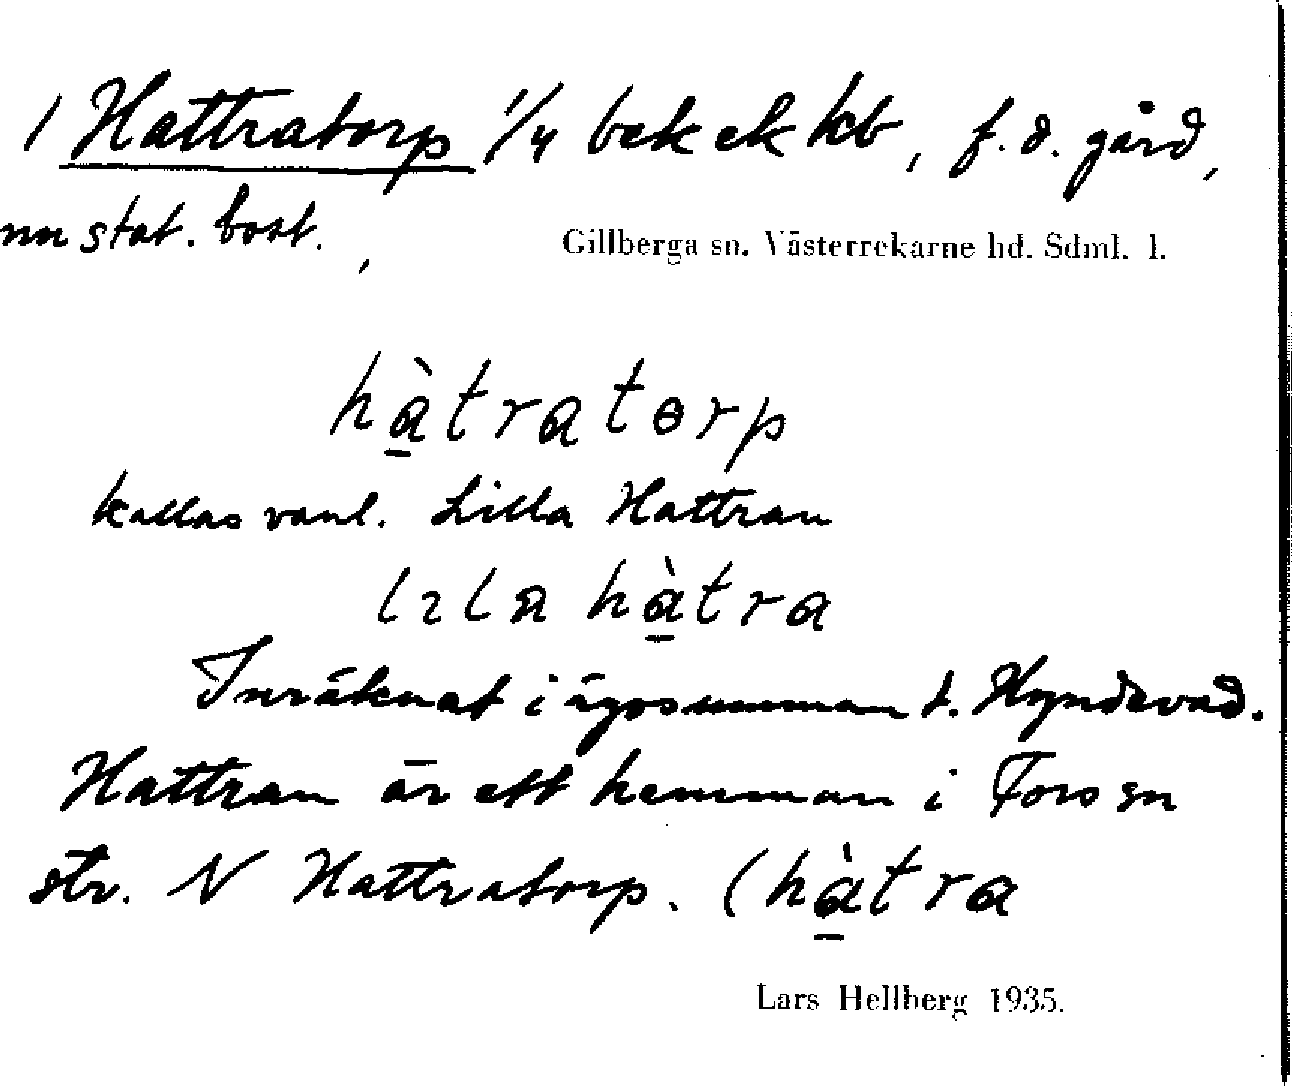 1 Hattratorp 1/4 bek ek kb, f.d. gård,
nu stat. bost.,
Gillberga sn. Västerrekarne hd. Sdml. l.
hàtratɵrp
kallas vanl. Lilla Hattran
lɩla hàtra
Inräknat i ägosumman t. Hyndevad.
Hattran är ett hemman i Fors sn
str. N Hattratorp. (hàtra
Lars Hellberg 1935.